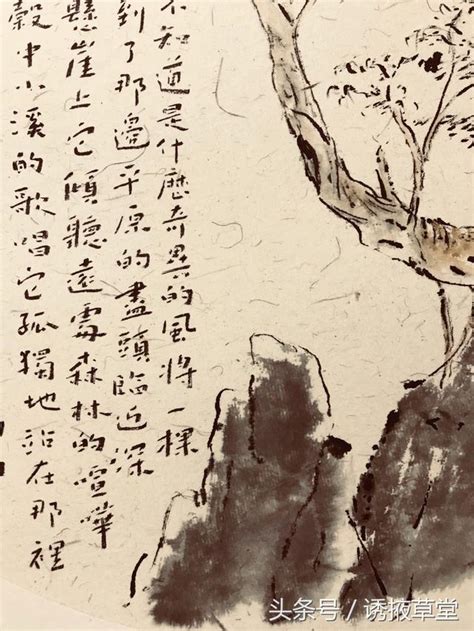 不知道是什麼奇異的風將一棵
到了那邊平原的盡頭臨近深
懸崖上它傾聽遠處森林的喧嘩
穀中小溪的歌唱它孤獨地站在那裡
头条号 / 诱掖草堂